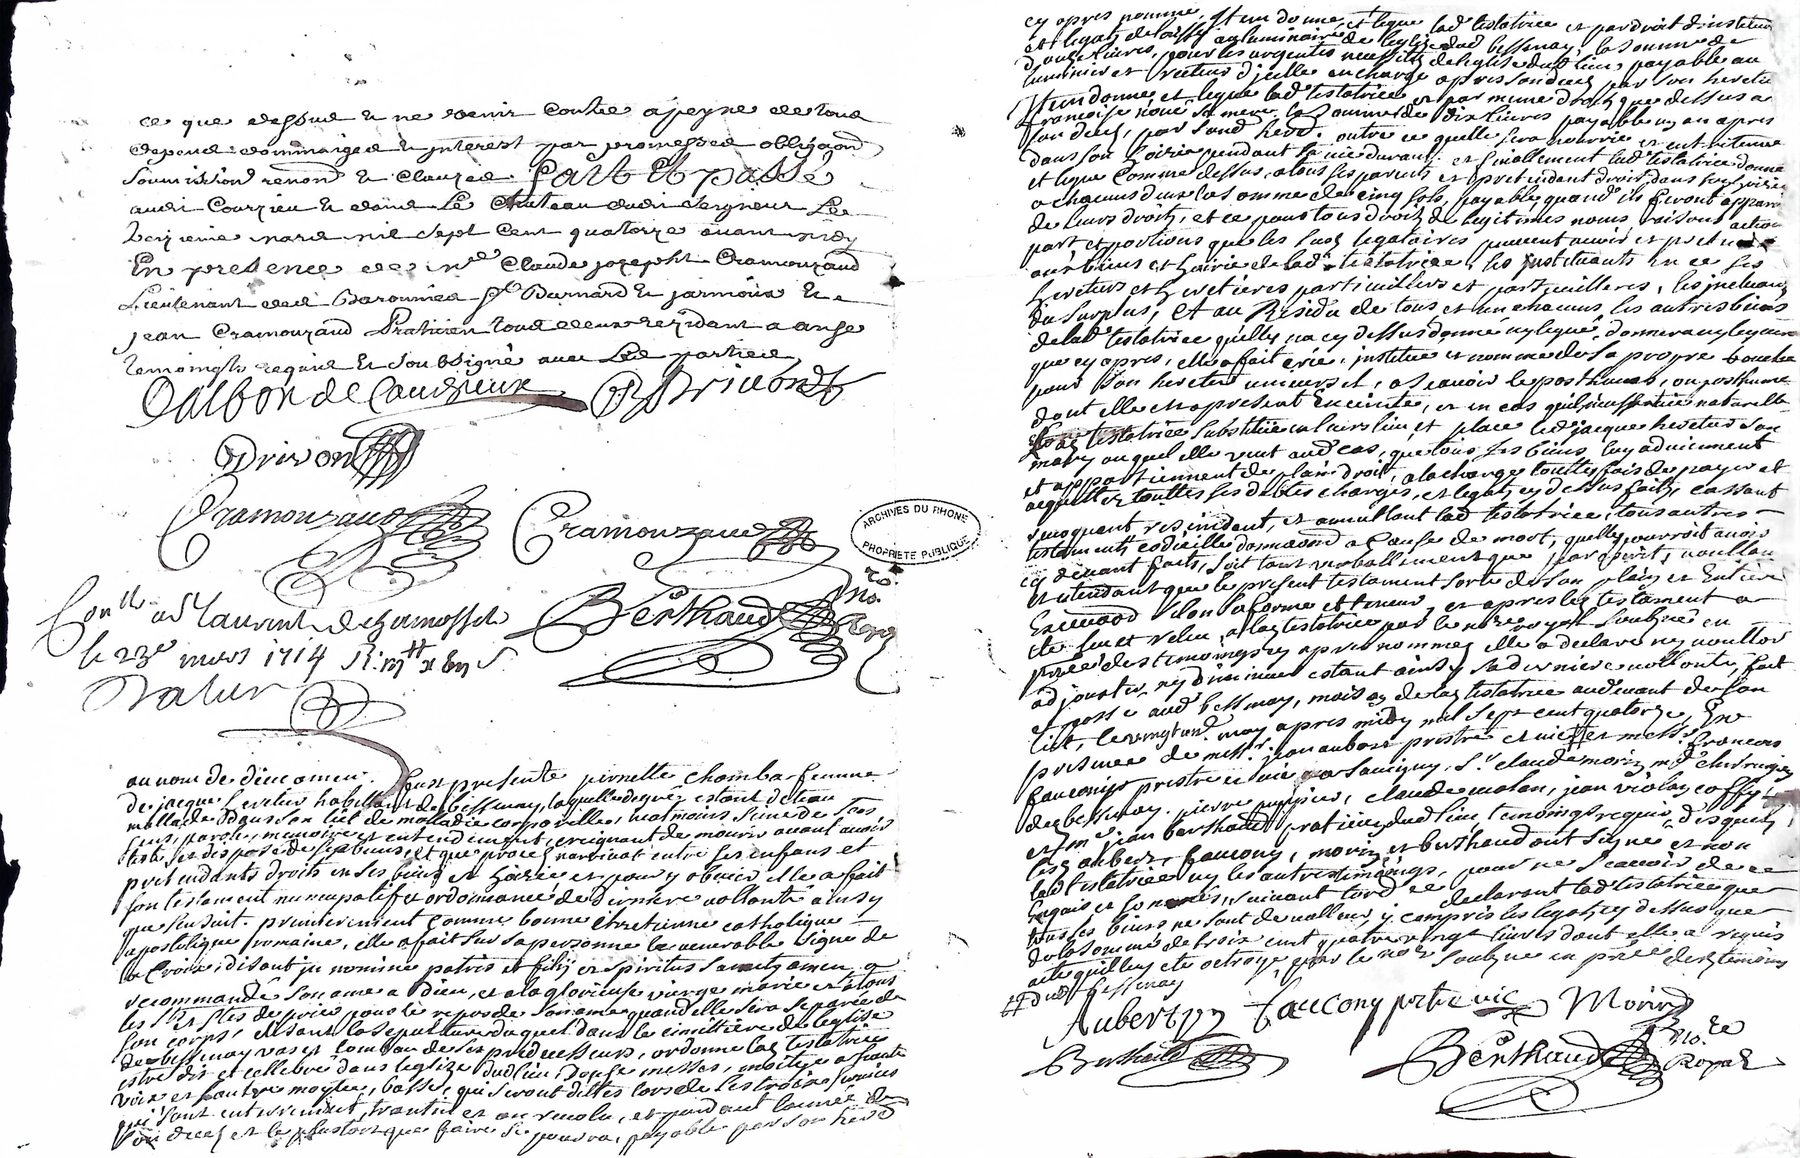 ce que dessus et ne venir contre a peyne de tous
depens dommaiges et interest par promesses obligaons
soumissions renons et clauzes. Fait et passé
audit Courzieu et dans Le Chateau dudit seigneur Le
mars mil sept cent quatorze avant midy
En presence de Claude Josepht Cramouzaud
Lieutenant des Baronnies St Bernard et jarnioux et
jean Cramouzaud Praticien tous deux rezidant a anse
temoingts requis et soubsigné avec Les parties
Dalbon de
Brivon
Cramouzaud Cramouzaud
ARCHIVES DU RHONE
PROPRIÉTÉ PUBLIQUE
Conlle a St Laurent de chamousset Berthaud no. re
le 23e mars 1714 Royal
au nom de dieu amen. fust presente pernette chamba femme
de jacque habittant de bessenay, laquelle de gré estant detenu
mallade dans son lict de malladie corporelle, neatmoins saine de ses
sens, parolle, memoire et entendement, craignant de mourir avant avoir
testé, et disposé de ses biens, et que proces n'arrivat entre ses enfans et
pretendants droits en ses biens et hoirie et pour y obvier elle a fait
son testament nuncupatif et ordonnance de derniere vollonté ainsy
que s'ensuit. premierement comme bonne chretienne catholique
apostolique romaine, elle a fait sur sa personne le venerable signe de
la croix, disant in nomine patris et filij et spiritus sancty amen, a
recommandé son ame a dieu, et a la glorieuse vierge marie et a tous
les Sts et Stes de prier pour le repos de son ame quand elle sera separée de
son corps, elisant la sepulture duquel dans le cimittiere de l'eglise
de bessenay vas et tombeau de ses predecesseurs, ordonne lad. testatrice
estre dit et cellebré dans l'eglize dud. lieu douse messes, moitye a haute
voix et l'autre moytye, basse, qui seront dittes lors de les trois services
qui sont enterrement, trantin et an revolu, et pendant l'année de
son deces et le plustost que faire se pourra, payable par son hered
cy apres nommé. Item donne et legue lad. testatrice et par droit d'institun
et legat de laisse au luminaire de l'eglize dud. bessenay, la somme de
douze livres, pour les urgentes necessites de l'eglise dud. lieu payable au
luminier et recteur d'icelle en charge apres son deces par son heretier
Item donne et legue lad. testatrice et par mesme droit que dessus a
francoise sa mere la somme de dix livres payable un an apres
son deces, par sond. hered. outre ce quelle sera nourrie et entretenue
dans son hoirie pendant sa vie durant. et finallement lad. testatrice donne
et legue comme dessus, a tous ses parens et pretendant droit dans son hoirie
a chacuns d'eux la somme de cinq sols, payable quand ils feront apparoir
de leurs droits, et ce pour tous droits de legitimes noms raisons action
part et portions que les susd. legataires peuvent avoir et pretendre
aux biens et hoirie de lad. testatrice, les instituants en ce ses
heretiers et heretieres particuliers et particullieres, les
du surplus, Et au Residu de tous et un chacuns les autres biens
de lad. testatrice qu'elle n'a cy dessus donné ny legué, donnera ny leguera
que cy apres, elle a fait cree, institue et nomme de sa propre bouche
pour son heretier universel, a scavoir le posthume, ou posthume
dont elle est a present enceinte, et en cas qu'il
lad. testatrice substitue en leurs lieu et place led. jacque son
mary auquel elle veut aud. cas, que tous ses biens luy adviennent
et appartiennent de plain droit, a la charge touttesfois de payer et
acquitter touttes ses debtes charges, et legats cy dessus faits, cassant
revoquant rescindant, et annullant lad. testatrice, tous autres
testaments codicille donnaons a cause de mort, quelle pourroit avoir
cy devant faits, soit tant verballement que par escrit, voullant
et entendant que le present testament sorte de son plain et entier
Executaon selon sa forme et teneur, et apres led. testament a
esté leu et releu, a lad. testatrice par le nore royal soubzné en
pnce des temoings cy apres nommez elle a declaré ny voulloir
adjouster, ny diminuer estant ainsy sa derniere vollonté, fait
et passé aud. bessenay, maison de lad. testatrice audevant de son
lict, le may apres midy mil sept cent quatorze, En
presence de messr. jean aubert prestre et vicre et messr francois
fauconys prestre et vicre a savigny, Sr. claude morin me. chirurgien
de bessenay. pierre claude molan, jean violay
et me. jean berthaud praticien dud. lieu temoings requis, desquels
les aubert, faucony, morin et berthaud ont signé et non
lad. testatrice ny les autres temoings, pour ne scavoir de ce
Enquis et sommés, suivant l'ord ce declarant lad. testatrice que
tous ses biens ne sont de valleur y compris les legats cy dessus que
de la somme de trois cent quatre vingt livres dont elle a requis
acte qu'illuy esté octroyé par le nore soubzne en pnce des temoins
dud. bessenay
Aubert Faucony prtre vic Morin
Berthaud Berthaud no. re
Royal